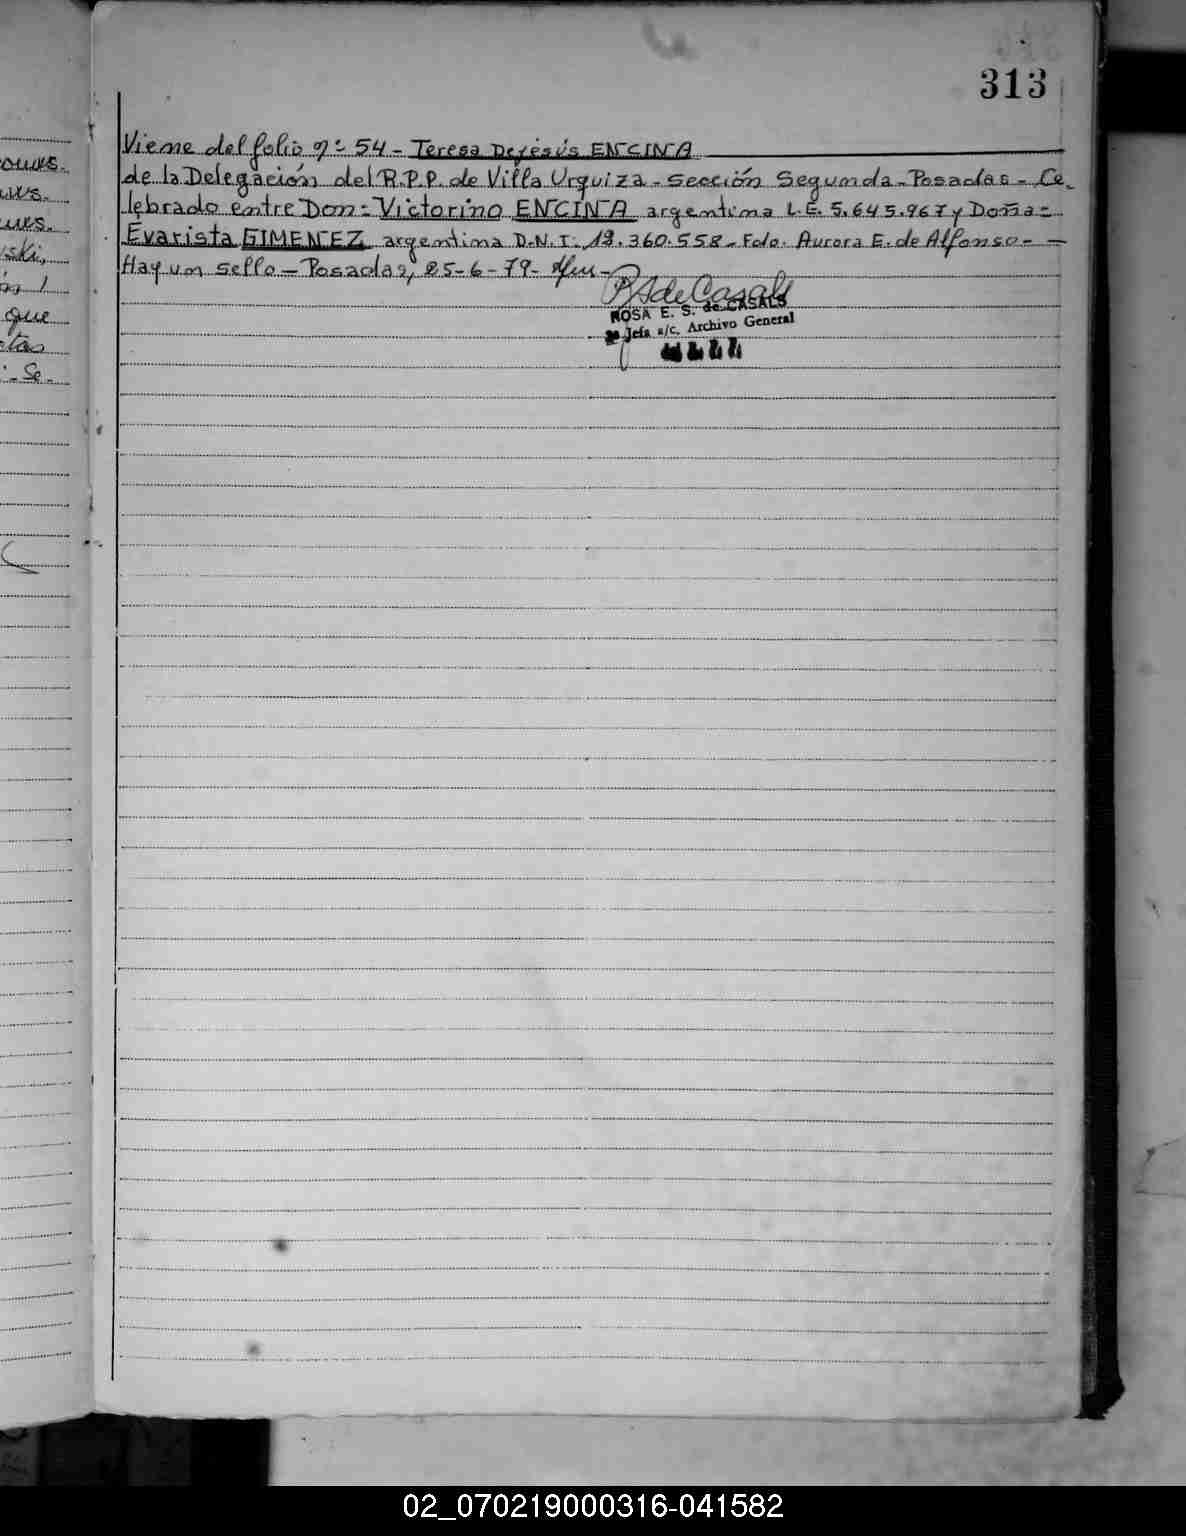 313
Viene del folio nº 54 - Teresa Dejesús ENCINA
de la Delegación del R.P.P. de Villa Urquiza - Sección Segunda - Posadas - Ce-
lebrado entre Don = Victorino ENCINA argentina L.E. 5.645.967 y Doña =
Evarista GIMENEZ argentina D.N.I. 12.360.558 - Fdo. Aurora E. de Alfonso - -
Hay un sello - Posadas, 25-6-79-
R S de Casals
ROSA E. S. de CASALS
Jefa a/c. Archivo General
ouvs.
uvs.
uvs.
ski,
que
ctas
Se -
02_070219000316-041582